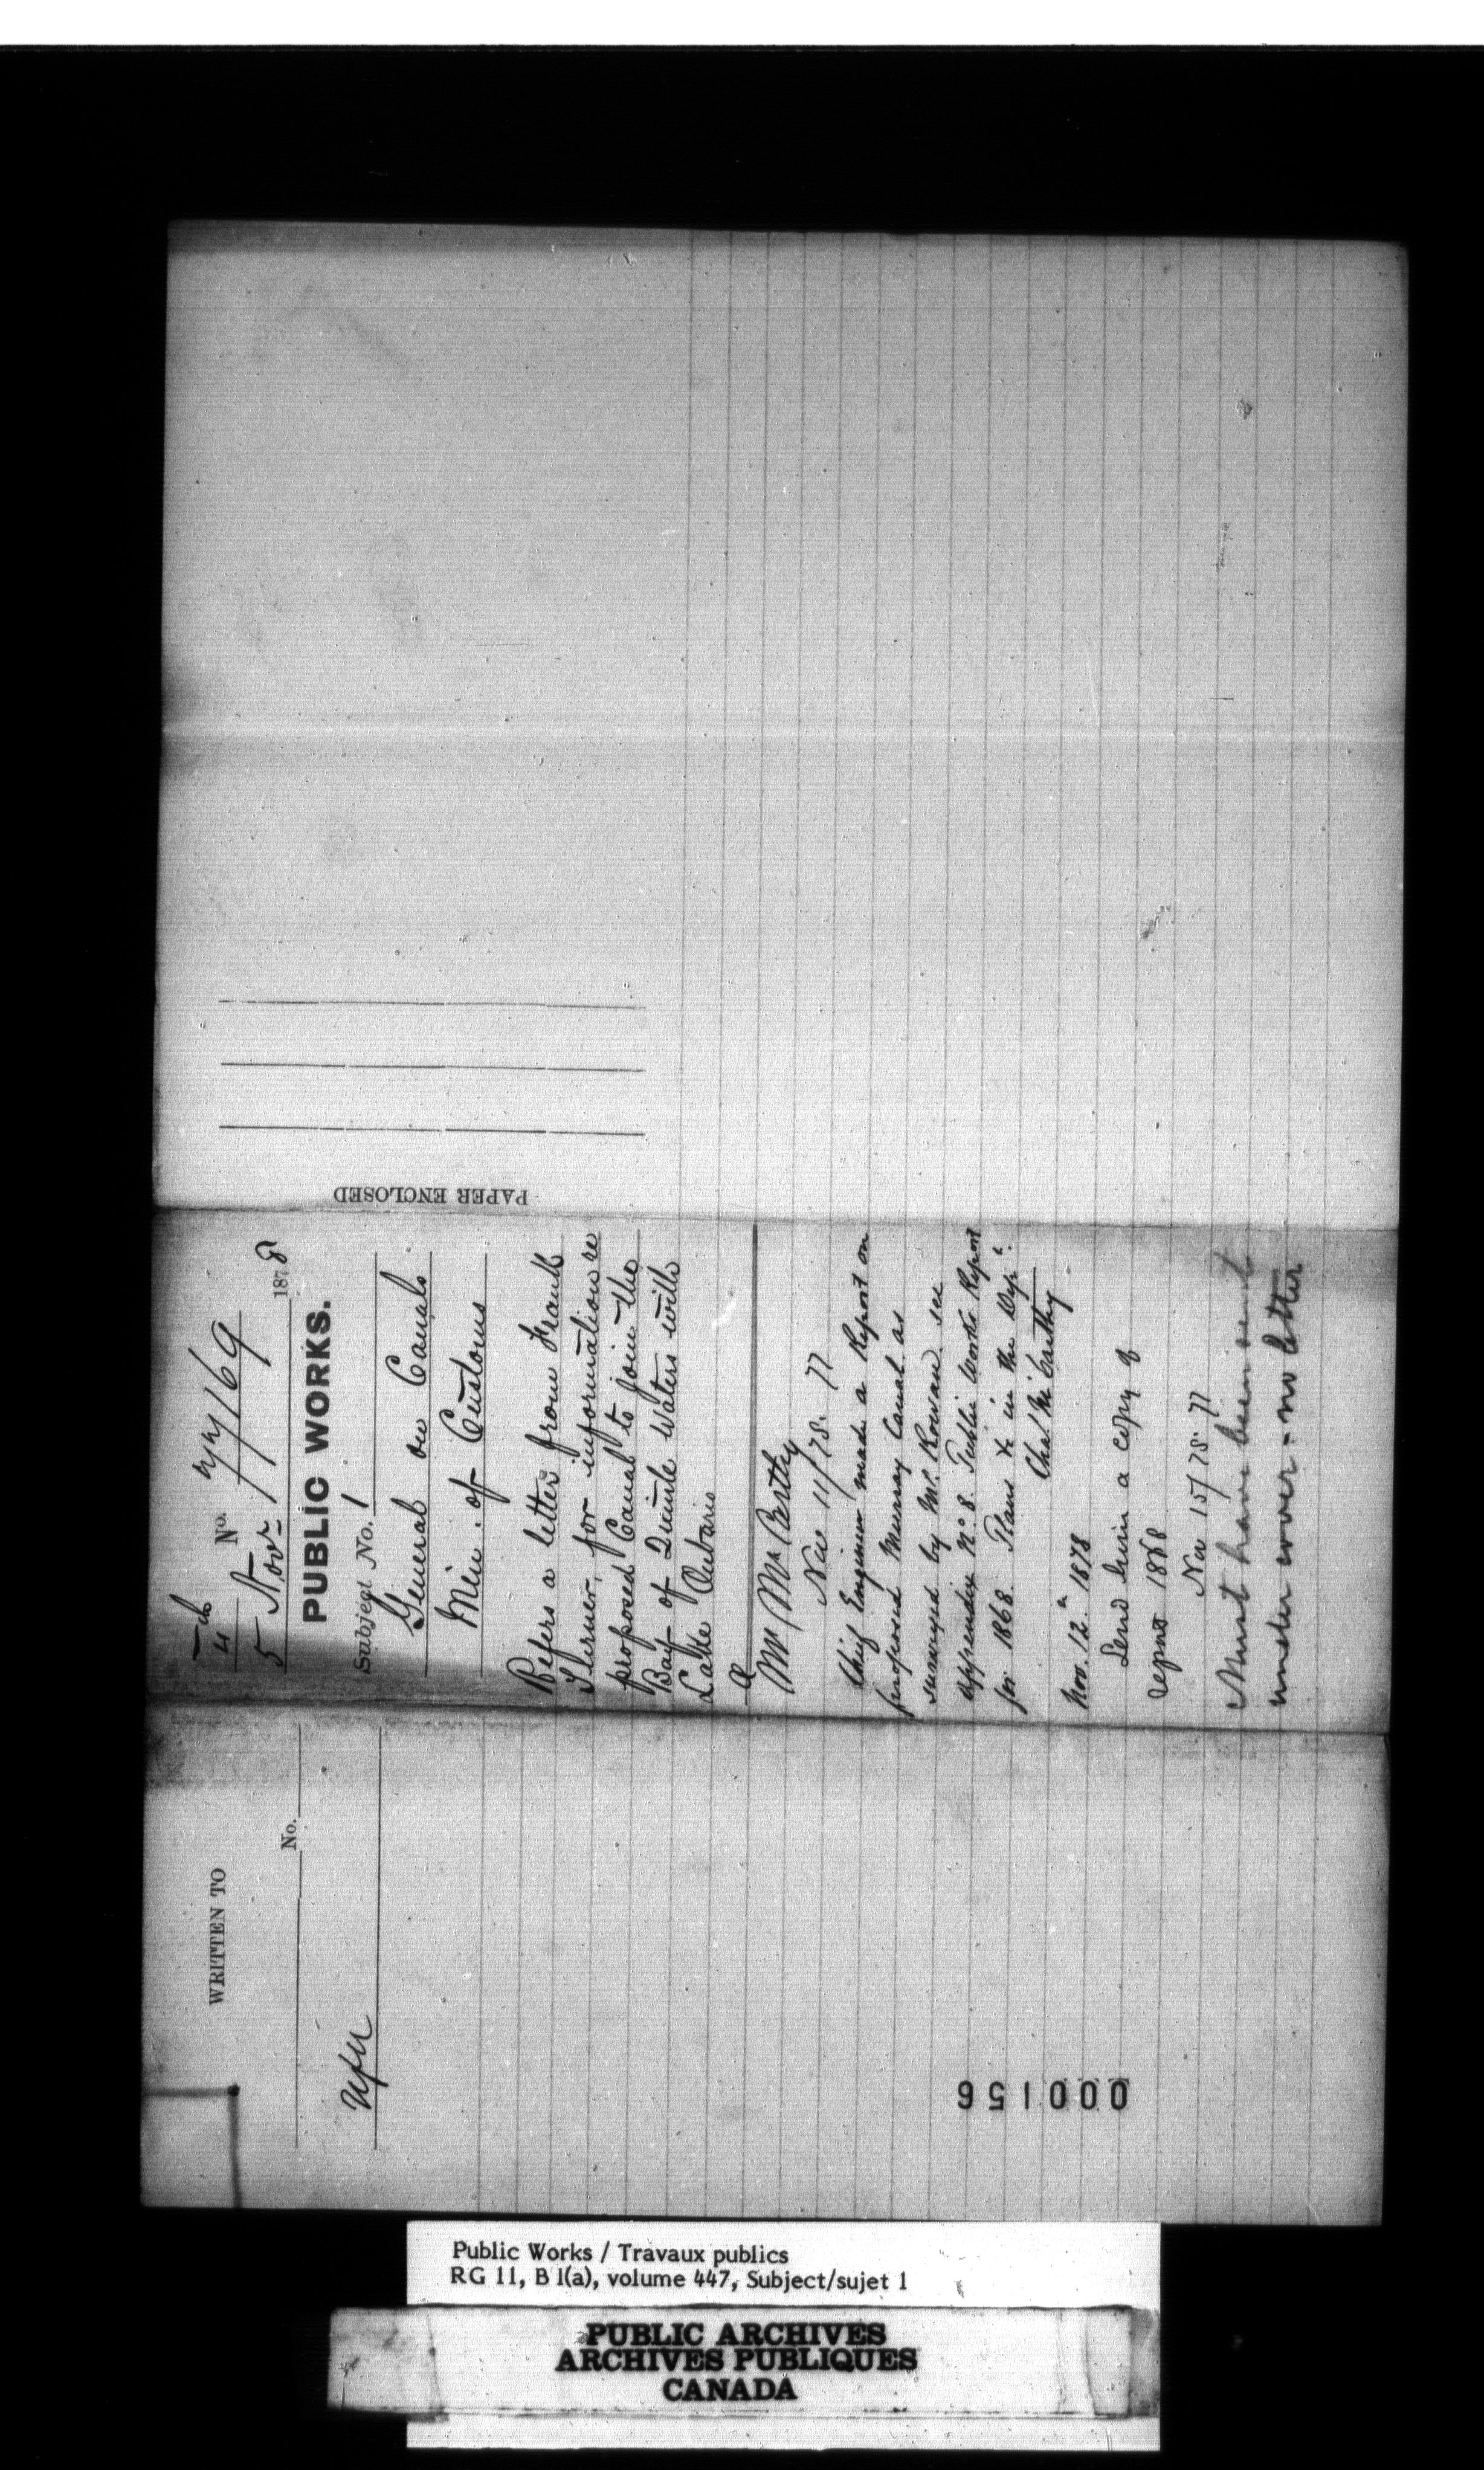 WRITTEN TO
No.
No. 77169
5 Nov. 1878
PUBLIC WORKS.
Subject No. 1
General on Canals
Min. of Customs
Refers a letter from Frank
Turner, for information re
proposed Canal to join the
Bay of Quinte Waters with
Lake Ontario
Mr McCarthy
11/78.
Chief Engineer made a Report on
proposed Murray Canal as
surveyed by Mr. Rowan. see
Appendix No. 8. Public Works Report
for 1868. Plans &c in the Dept.
Chas McCarthy
Nov. 12th 1878
Send him a copy of
report 1868
15/78.
Must have been sent
under cover - no letter
PAPER ENCLOSED
000156
Public Works / Travaux publics
RG 11, B 1(a), volume 447, Subject/sujet 1
PUBLIC ARCHIVES
ARCHIVES PUBLIQUES
CANADA